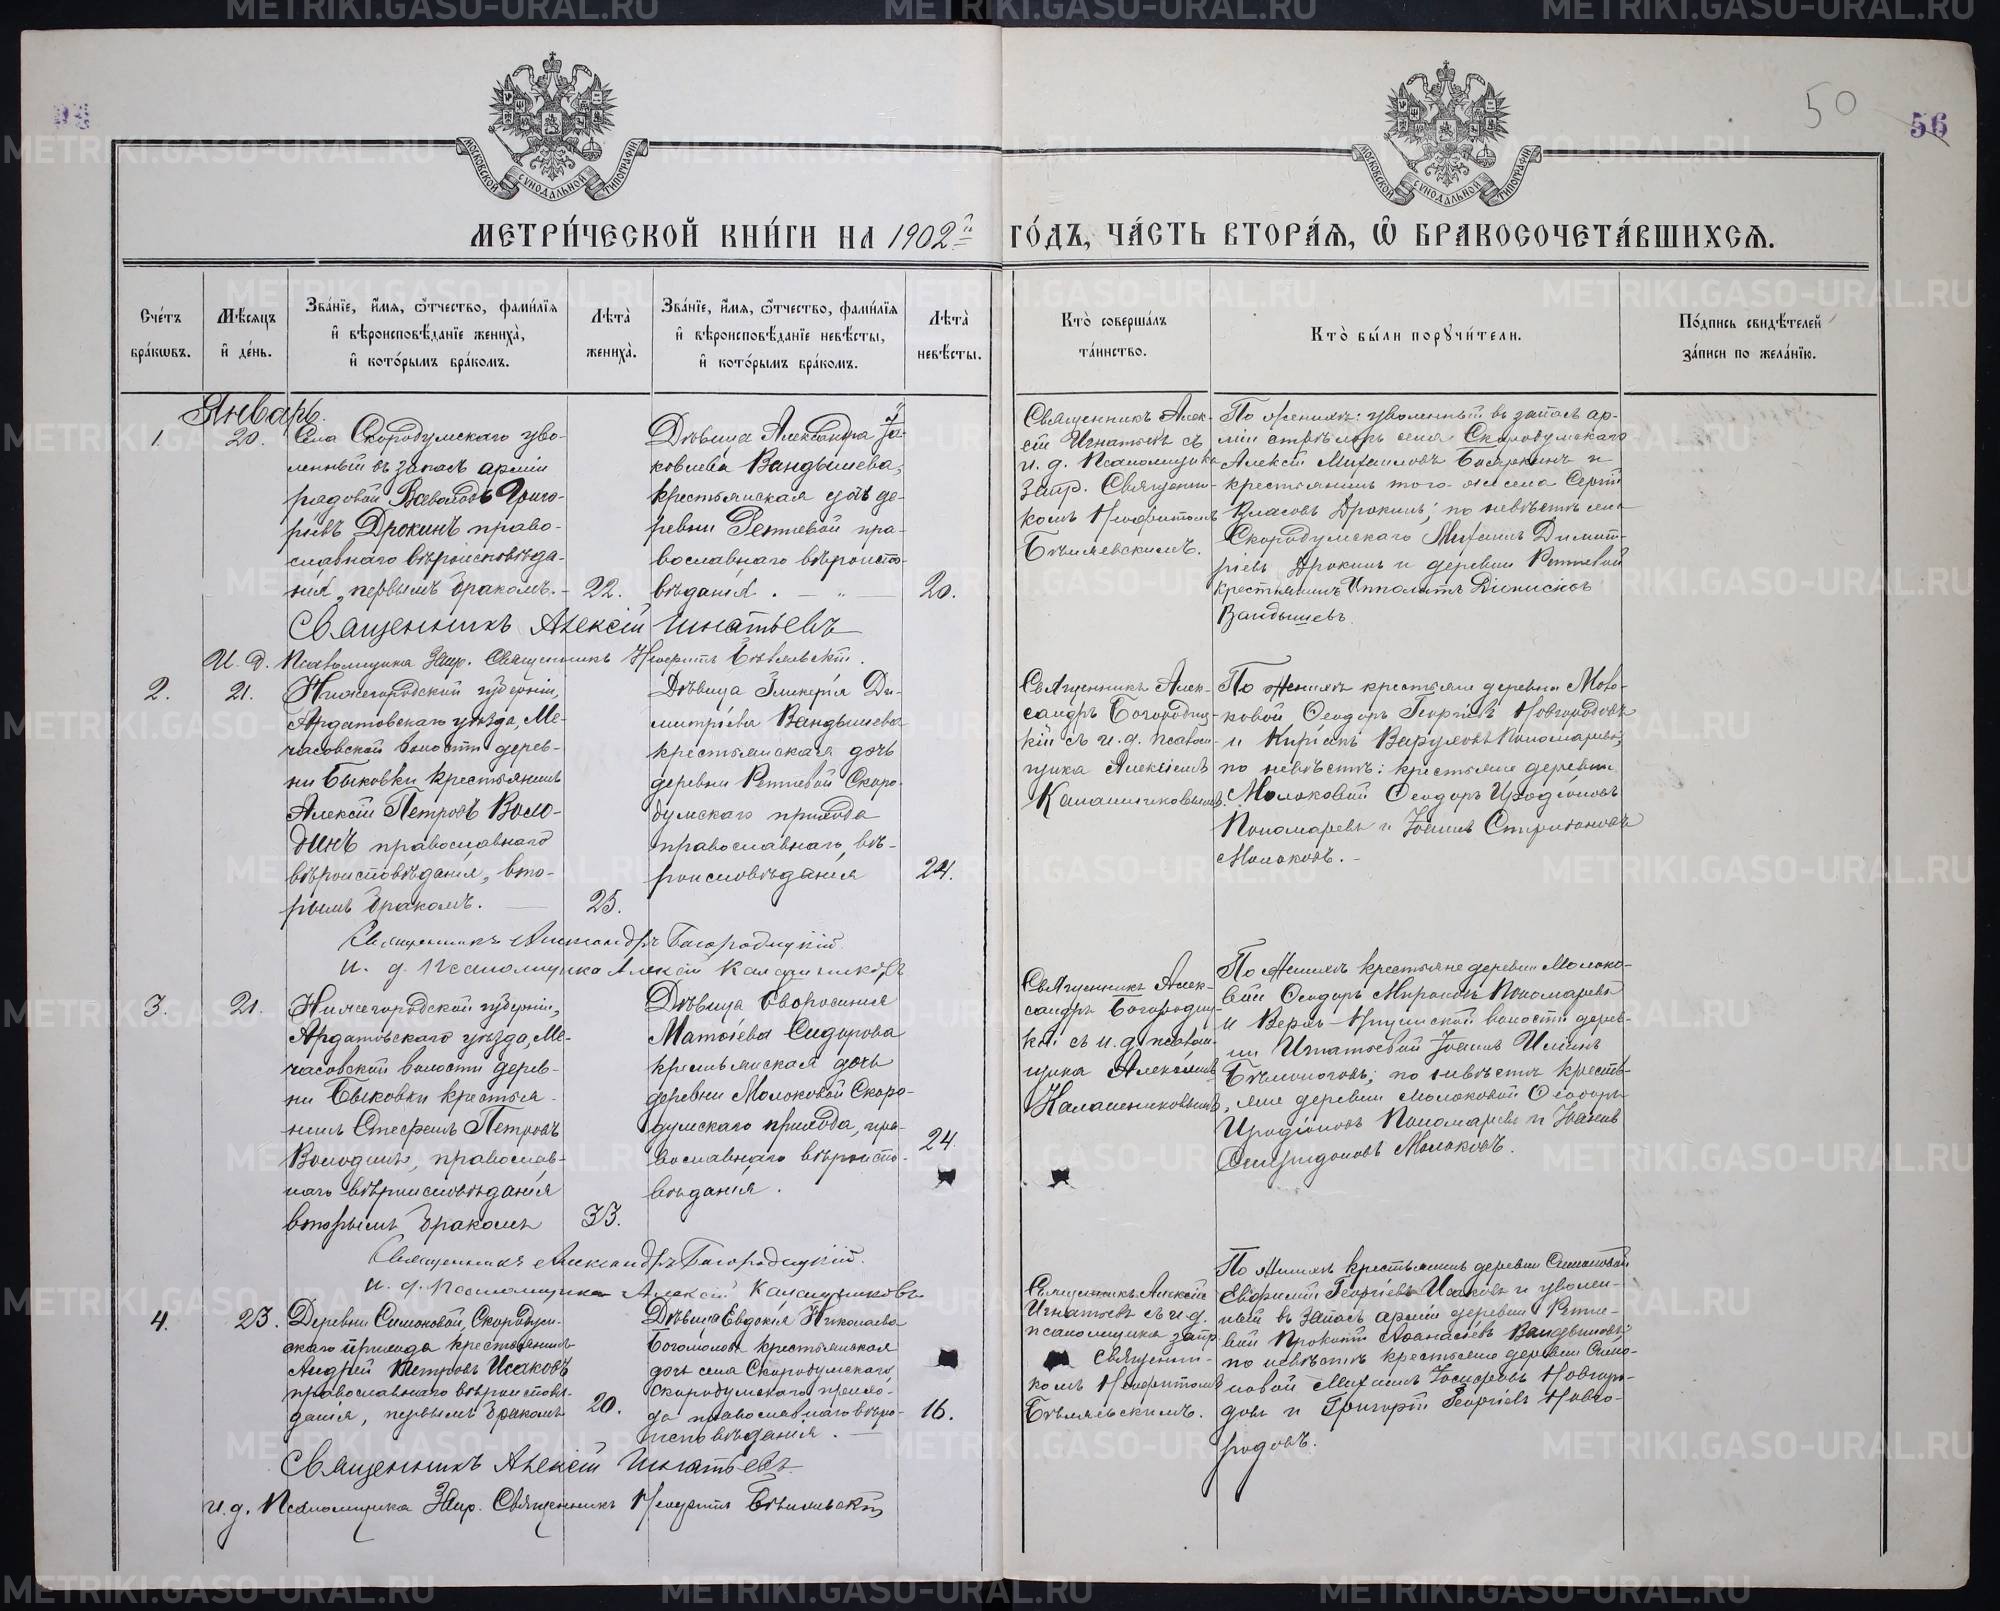 50
56
МОСКОВСКОЙ СѴНОДАЛЬНОЙ ТИПОГРАФІИ
МОСКОВСКОЙ СѴНОДАЛЬНОЙ ТИПОГРАФІИ
МЕТРИ́ЧЕСКОЙ КНИ́ГИ НА 1902й ГО́ДЪ, ЧА́СТЬ ВТОРА́Ѧ, Ѽ БРАКОСОЧЕТА́ВШИХСѦ.
Сче́тъ бра́кωвъ.
Мѣ́сѧцъ и҆ де́нь.
Зва́нїе, и҆́мѧ, ѻ҆́тчество, фами́лїѧ и҆ вѣроисповѣ́данїе жениха̀, и҆ кото́рымъ бра́комъ.
Лѣта̀ жениха̀.
Зва́нїе, и҆́мѧ, ѻ҆́тчество, фами́лїѧ и҆ вѣроисповѣ́данїе невѣ́сты, и҆ кото́рымъ бра́комъ.
Лѣта̀ невѣ́сты.
Кто̀ соверша́лъ та́инство.
Кто̀ бы́ли порꙋчи́тели.
По́дпись свидѣ́телей за́писи по жела́нїю.
Январь.
1.
20.
Села Скородумскаго уво-
ленный въ запасъ арміи
рядовой Всеволодъ Григо-
рьевъ Дрокинъ право-
славнаго вѣроисповѣда-
нія, первымъ бракомъ.
22.
Дѣвица Александра Іа-
ковлева Вандышева,
крестьянская дочь де-
ревни Реттевой пра-
вославнаго вѣроиспо-
вѣданія.
20.
Священникъ Алек-
сій Игнатьевъ съ
и. д. Псаломщика
Запр. Священни-
комъ Неофитомъ
По женихѣ: уволенный въ запасъ ар-
міи стрѣлокъ села Скородумскаго
Алексій Михаиловъ и
крестьянинъ того же села Сергій
Власовъ Дрокинъ; по невѣстѣ села
Скородумскаго Михаилъ Димит-
ріевъ Дрокинъ и деревни Реттевой
крестьянинъ Ипполитъ Діонисіевъ
Вандышевъ.
Священникъ Алексій Игнатьевъ
И. д. Псаломщика Запр. Священникъ Неофитъ
2.
21.
Нижегородской губерніи,
Ардатовскаго уѣзда, Ме-
часовской волости дерев-
ни Быковки крестьянинъ
Алексій Петровъ Воло-
динъ православнаго
вѣроисповѣданія, вто-
рымъ бракомъ.
25.
Дѣвица Гликерія Ди-
митріева Вандышева
крестьянская дочь
деревни Реттевой Скоро-
думскаго прихода
православнаго, вѣ-
роисповѣданія
24.
Священникъ Алек-
сандръ Богородиц-
кій съ и. д. псалом-
щика Алексіемъ
Калашниковымъ.
По женихѣ крестьяне деревни Моло-
ковой, Ѳеодоръ Георгіевъ Новгородовъ
и Кирьякъ Пономаревъ;
по невѣстѣ: крестьяне деревни
Молоковой Ѳеодоръ Иродіоновъ
Пономаревъ и Іоаннъ Спиридоновъ
Молоковъ.
Священникъ Александръ Богородицкій.
и. д. псаломщика Алексій Калашниковъ
3.
21.
Нижегородской губерніи,
Ардатовскаго уѣзда, Ме-
часовской волости дерев-
ни Быковки крестья-
нинъ Стефанъ Петровъ
Володинъ, православ-
наго вѣроисповѣданія
вторымъ бракомъ
33.
Дѣвица Евфросинія
Матѳіева Сидорова
крестьянская дочь
деревни Молоковой Скоро-
думскаго прихода, пра-
вославнаго вѣроиспо-
вѣданія.
24.
Священникъ Алек-
сандръ Богородиц-
кій съ и. д. псалом-
щика Алексіемъ
Калашниковымъ.
По женихѣ крестьяне деревни Молоко-
вой Ѳеодоръ Мироновъ Пономаревъ
и Верхъ-Ницинской волости дерев-
ни Игнатьевой Іоаннъ
Бѣлоноговъ; по невѣстѣ крестья-
яне деревни Молоковой Ѳеодоръ
Иродіоновъ Пономаревъ и Іоаннъ
Спиридоновъ Молоковъ.
Священникъ Александръ Богородицкій.
и. д. псаломщика Алексій Калашниковъ
4.
23.
Деревни Симоновой, Скородум-
скаго прихода крестьянинъ
Андрей Петровъ Исаковъ
православнаго вѣроисповѣ-
данія, первымъ бракомъ
20.
Дѣвица Евдокія Николаева
Богомолова крестьянская
дочь села Скородумскаго,
Скородумскаго прихо-
да православнаго вѣро-
исповѣданія.
16.
Священникъ Алексій
Игнатьевъ съ и. д.
псаломщика запр.
Священни-
комъ Неофитомъ
По женихѣ крестьянинъ деревни Симоновой
Евфимій Георгіевъ Исаковъ и уволен-
ный въ запасъ арміи деревни Ретте-
вой Прокопій Аѳанасіевъ Вандышевъ;
по невѣстѣ крестьяне деревни Симо-
новой Михаилъ Новгоро-
довъ и Григорій Георгіевъ Новго-
родовъ.
Священникъ Алексій Игнатьевъ
и. д. Псаломщика Запр. Священникъ Неофитъ
METRIKI.GASO-URAL.RU